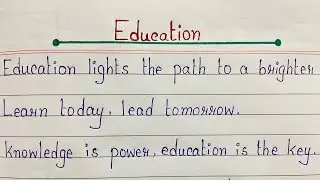 Education
Education lights the path to a brighter
Learn today, lead tomorrow.
Knowledge is power, education is the key.